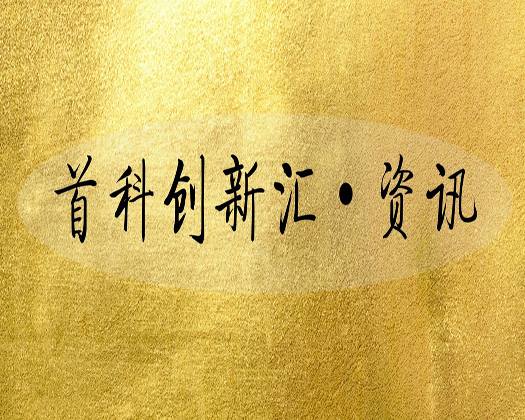 首科创新汇·资讯